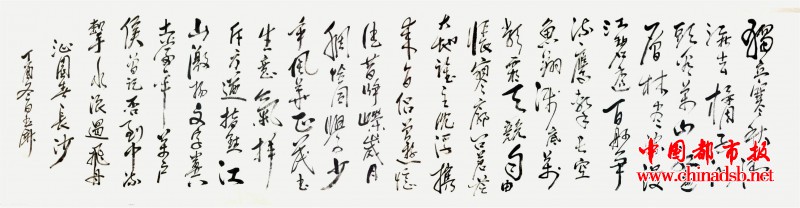 獨立寒秋湘
江北去橘子洲
頭看萬山紅遍
層林尽染漫
江碧透百舸争
流鷹擊長空
魚翔浅底萬
類霜天競自由
悵寥廓問蒼茫
大地誰主沉浮攜
来百侣曾遊憶
往昔崢嶸歲月
稠恰同學少
年風華正茂书
生意氣揮
斥方遒指點江
山激揚文字糞
土當年萬户
侯曾記否到中流
擊水浪遏飛舟
沁園春長沙
丁酉冬
中国都市报
www.chinadsb.net